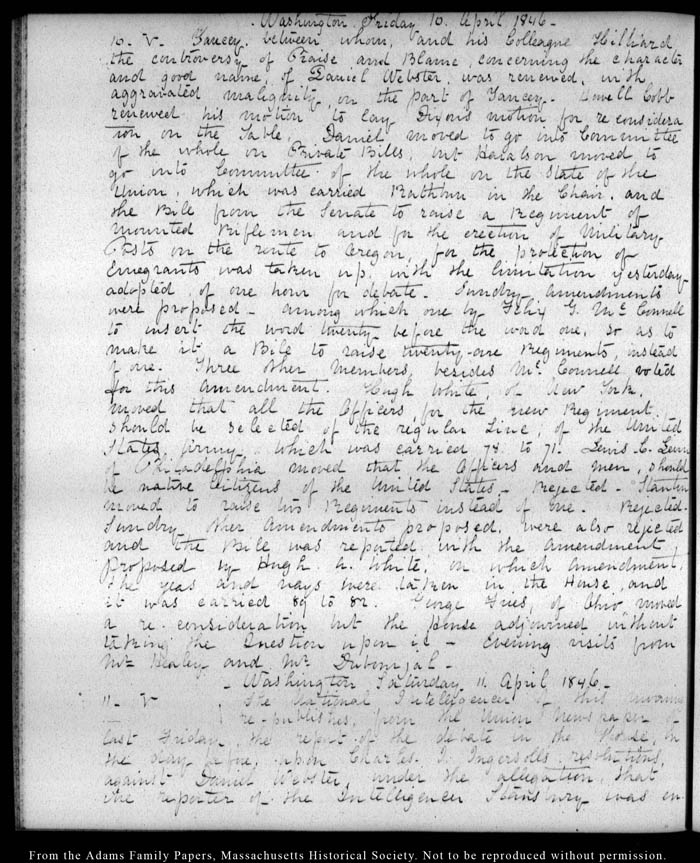 Washington Friday 10. April 1846–
10. V. Yancey between whom, and his Colleague Hilliard
the controversy of Praise and Blame, concerning the character
and good name, of Daniel Webster, was renewed, with
aggravated malignity, on the part of Yancey. Howell Cobb
renewed his motion to lay Dixon's motion for re considera
tion on the Table. Daniel moved to go into Committee
of the whole on Private Bills, but Haralson moved to
go into Committee of the whole on the State of the
Union, which was carried Rathbun in the Chair, and
the Bill from the Senate to raise a Regiment of
mounted Riflemen and for the erection of Military
Posts on the route to Oregon, for the protection of
Emigrants was taken up, with the limitation yesterday
adopted of one hour for debate. Sundry amendments
were proposed – among which one by Felix G. McConnell
to insert the word twenty before the word one, so as to
make it a Bill to raise twenty-one Regiments, instead
of one. Three other members, besides McConnell voted
for this amendment. Hugh White, of New York,
moved that all the Officers, for the new Regiment
should be selected of the regular Line, of the United
States, army, which was carried 78 to 71. Lewis C. Levin
of Philadelphia moved that the Officers and men, should
be native Citizens of the United States – Rejected – Stanton
moved to raise two Regiments instead of one. Rejected.
Sundry other amendments proposed, were also rejected
and the Bill was reported with the amendment
proposed by Hugh White, on which amendment,
the yeas and nays were taken in the House, and
it was carried 89 to 82. George Fries, of Ohio moved
a re-consideration but the House adjourned without
taking the Question upon it – Evening visits from
Mr Healey and Mr Dubourjal –
Washington Saturday 11. April 1846 –
11. V. The National Intelligencer of this morning
re-publishes, from the Union Newspaper of
last Friday, the report of the debate in the House, on
the day before, upon Charles J. Ingersoll's resolutions,
against Daniel Webster, under the allegation, that
the reporter of the Intelligencer Stansbury was en
From the Adams Family Papers, Massachusetts Historical Society. Not to be reproduced without permission.